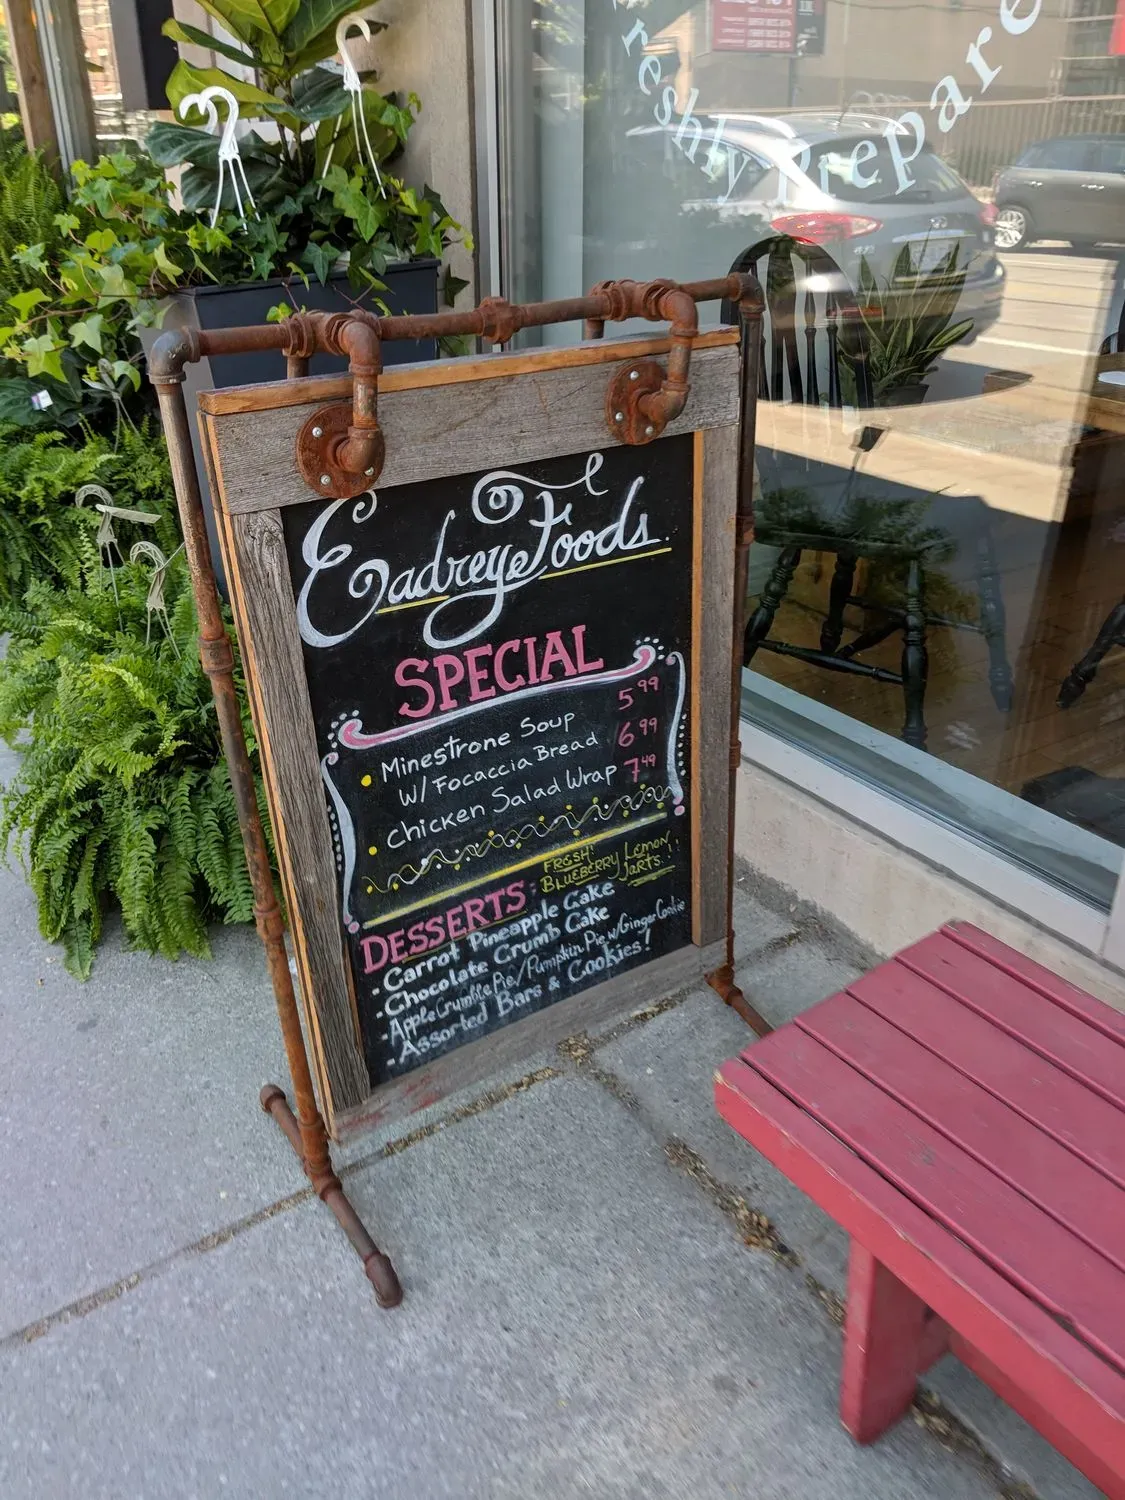 Freshly Prepare
Eadrey Foods.
SPECIAL
Minestrone Soup 5.99
W/ Focaccia Bread 6.99
Chicken Salad Wrap 7.49
DESSERTS: FRESH! BLUEBERRY LEMON TARTS!!
• Carrot Pineapple Cake
• Chocolate Crumb Cake
• Apple Crumble Pie/Pumpkin Pie w/Ginger Cookie
• Assorted Bars & Cookies!